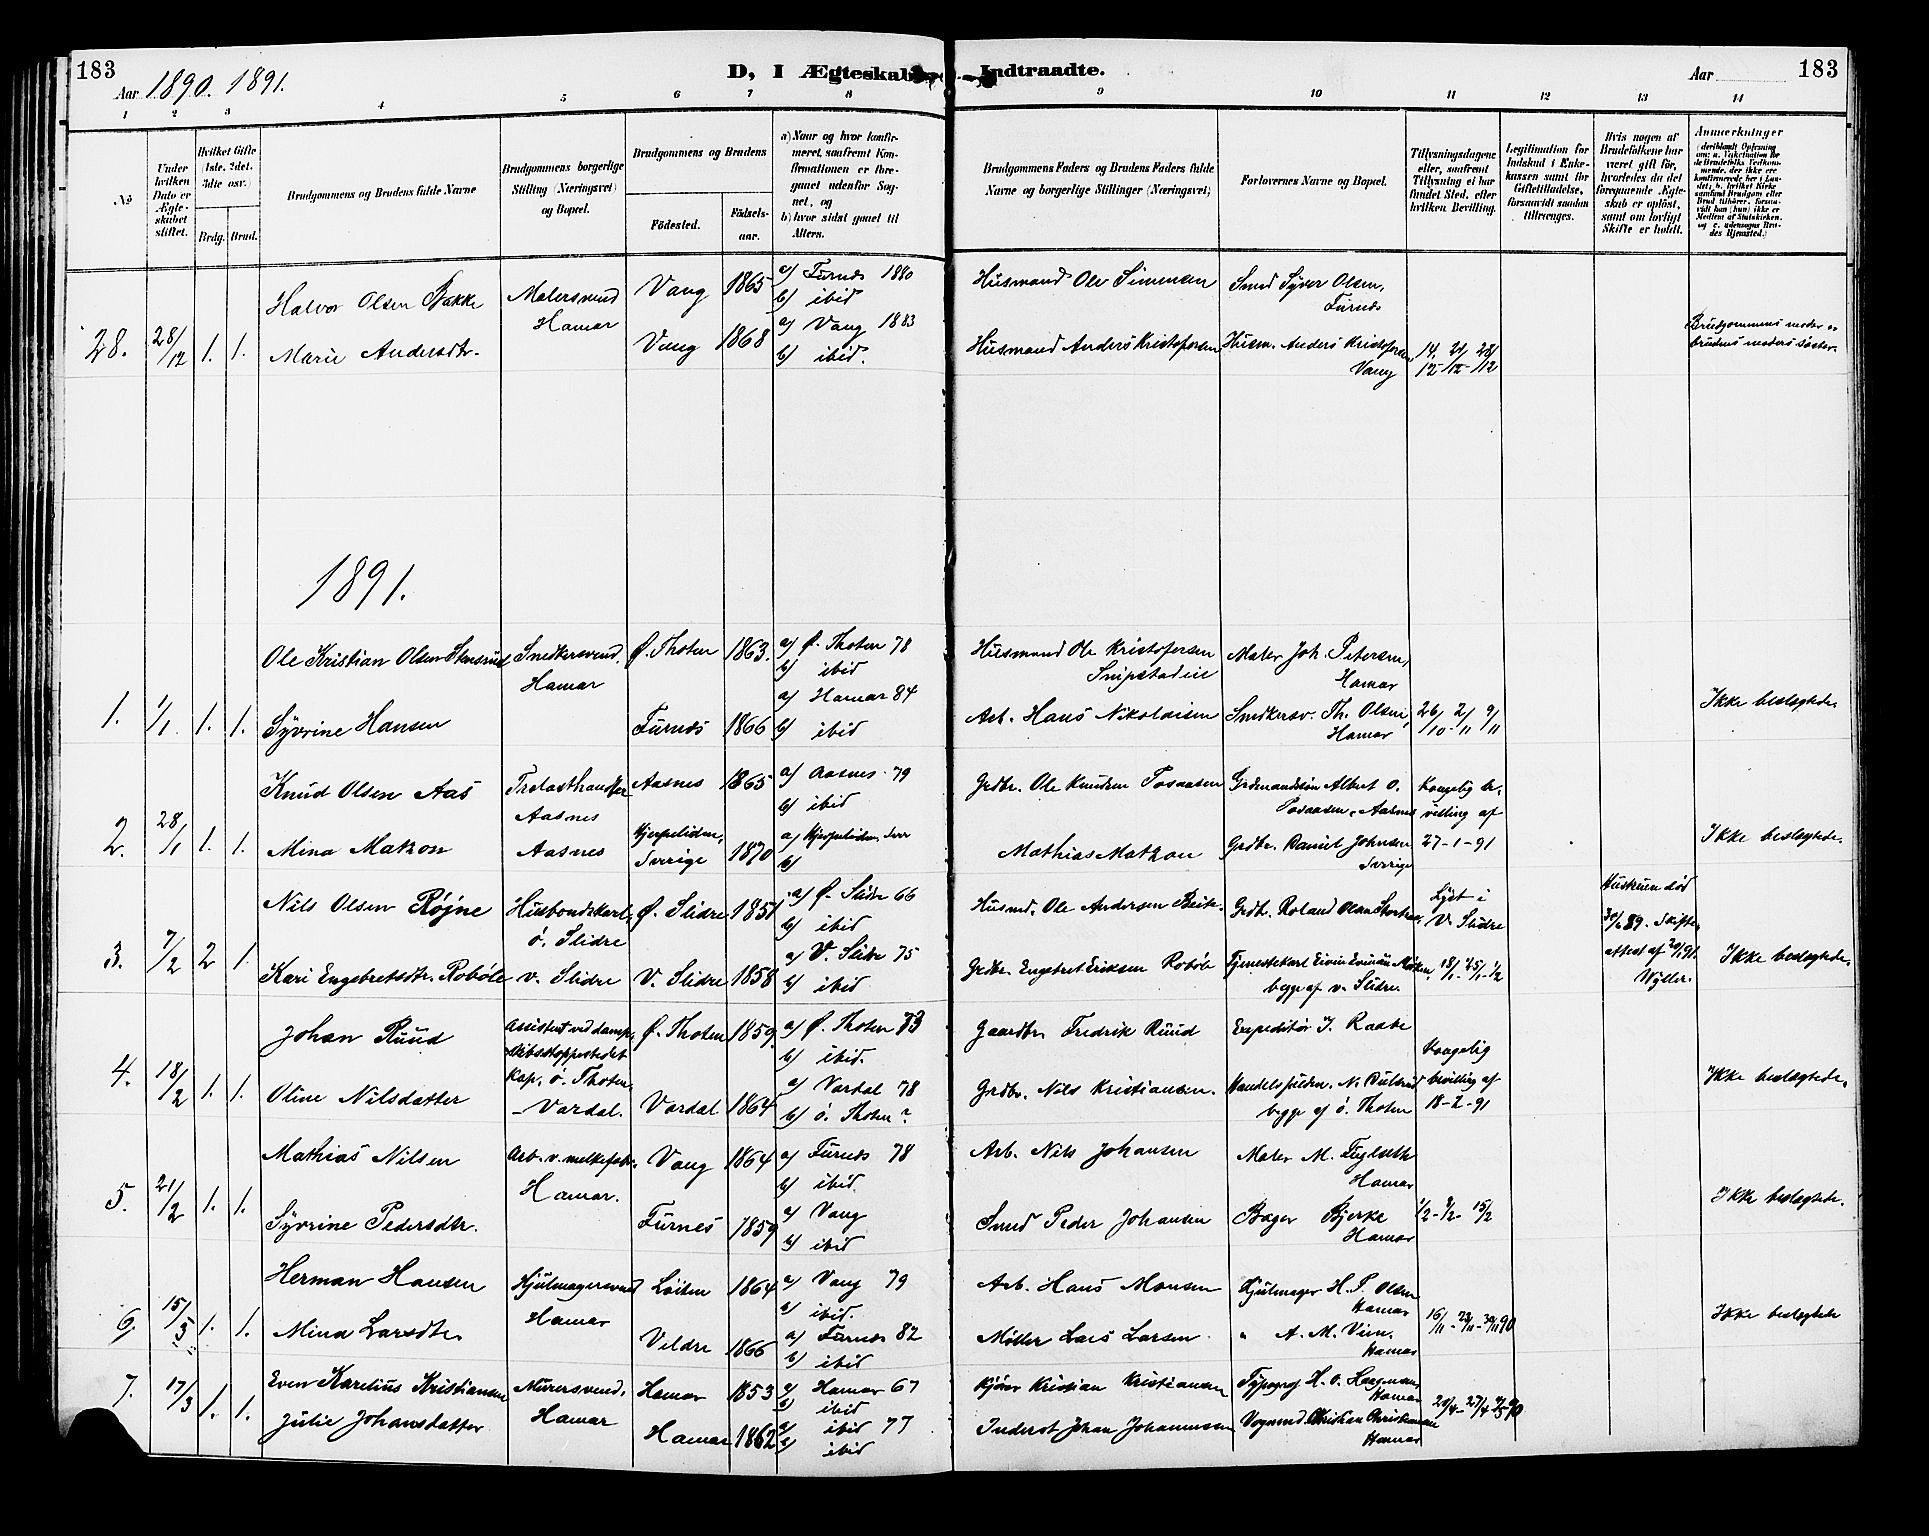 183
Aar 1890. 1891.
D, I Ægteskab Indtraadte.
Aar
183
1 2 3 4 5 6 7 8 9 10 11 12 13 14
No
Under hvilken Dato er Ægteskabet stiftet.
Hvilket Gifte (1ste, 2det, 3die osv.)
Brdg. Brud.
Brudgommens og Brudens fulde Navne
Brudgommens borgerlige Stilling (Næringsvei) og Bopæl.
Brudgommens og Brudens
Födested.
Födselsaar.
a) Naar og hvor konfirmeret, saafremt Konfirmationen er foregaaet udenfor Sognet, og
b) hvor sidst gaaet til Alters.
Brudgommens Faders og Brudens Faders fulde Navne og borgerlige Stillinger (Næringsvei)
Forlovernes Navne og Bopæl.
Tillysningsdagene eller, saafremt Tillysning ei har fundet Sted, efter hvilken Bevilling.
Legitimation for Indskud i Enkekassen samt for Giftetilladelse, forsaavidt saadan tiltrænges.
Hvis nogen af Brudefolkene har været gift før, hvorledes da det foregaaende Ægteskab er oplöst, samt om lovligt Skifte er holdt.
Anmærkninger
28. 28/12 1. 1.
Halvor Olsen Bakke
Malersvend Hamar
Vang 1865
a) Furnes 1880
b) ibid
Husmand Ole Simensen
Smed Syver Olsen, Furnes
Marie Andersdtr.
Vang 1868
a) Vang 1883
b) ibid.
Husmand Anders Kristofersen
Husm. Anders Kristofersen Vang
14/12 - 21/12 - 28/12
Brudgommens moder er brudens moders søster.
1891.
1. 1/1 1. 1.
Ole Kristian Olsen Stensrud
Snedkersvend. Hamar
Ø. Thoten 1863.
a) Ø. Thoten 78
b) ibid
Husmand Ole Kristofersen
Maler Joh. Petersen, Hamar
Syvrine Hansen
Furnes 1866
a) Hamar 84
b) ibid
Arb. Hans Nikolaisen
Snedkersv. Th. Olsen, Hamar
26/10 - 2/11 9/11
Ikke beslægtede
2. 28/1 1. 1.
Knud Olsen Aas
Aasnes
Aasnes 1865
a) Aasnes 79
b) ibid
Grdbr. Ole Knudsen Posaasen
Grdmandsøn Albert O. Posaasen, Aasnes
Kongelig bevilling af 27-1-91
Mina Matzon
Aasnes
Sverige 1870
a)
b)
Mathias Matzon
Grdbr. Daniel Johnsen Sverige
Ikke beslægtede.
3. 7/2 2 1.
Nils Olsen Røjne
Husbondskarl, ø. Slidre
Ø. Slidre 1851
a) Ø. Slidre 66
b) ibid
Husmd. Ole Andersen
Grdbr. Roland Olsen
Lyst i V. Slidre
Hustruen død
Kari Engebretsdtr. Robøle
v. Slidre
V. Slidre 1858
a) V. Slidre 75
b) ibid
Grdbr. Engebret Eriksen Robøle
Tjenestekarl
begge af v. Slidre.
18/1 - 25/1 - 1/2
Wyller.
Ikke beslægtede.
4. 18/2 1. 1.
Johan Ruud
Assistent ved dampskibsstoppestedet Kap, ø. Thoten,
Ø. Thoten 1859.
a) Ø. Thoten 73
b) ibid.
Gaardbr. Fredrik Ruud
Expeditør J. Raabe
Kongelig bevilling af 18-2-91
Oline Nilsdatter
- Vardal.
Vardal 1864
a) Vardal 78
b) ø. Thoten?
Grdbr. Nils Kristiansen.
begge af ø. Thoten
Ikke beslægtede.
5. 21/2 1. 1.
Mathias Nilsen
Arb. v. melkefabr. Hamar.
Vang 1864
a) Furnes 78
b) ibid.
Arb. Nils Johansen
Maler M. Fuglseth Hamar
Syvrine Pedersdtr.
Furnes 1859
a) Vang
b) ibid
Smed Peder Johansen
Bager Bjerke Hamar
1/2 - 8/2 - 15/2
Ikke beslægtede.
6. 15/3 1. 1.
Herman Hansen
Hjulmagersvend Hamar
Løiten 1864
a) Vang 79
b) ibid.
Arb. Hans Monsen
Hjulmager H. P. Olsen Hamar
Mina Larsdtr.
Veldre 1866
a) Furnes 82
b) ibid
Møller Lars Larsen
" A. M. Hamar
16/11 - 23/11 - 30/11 90
Ikke beslægtede
7. 17/3 1. 1.
Even Karelius Kristiansen
Murersvend, Hamar
Hamar 1853
a) Hamar 67
b) ibid
Kristian Kristiansen
Typograf H. O. Hamar
Julie Johansdatter
Hamar 1862
a) ibid 77
b) ibid
Inderst Johan Johannessen
Vognmd. Christian Christiansen Hamar
20/4 - 27/4 4/5 90